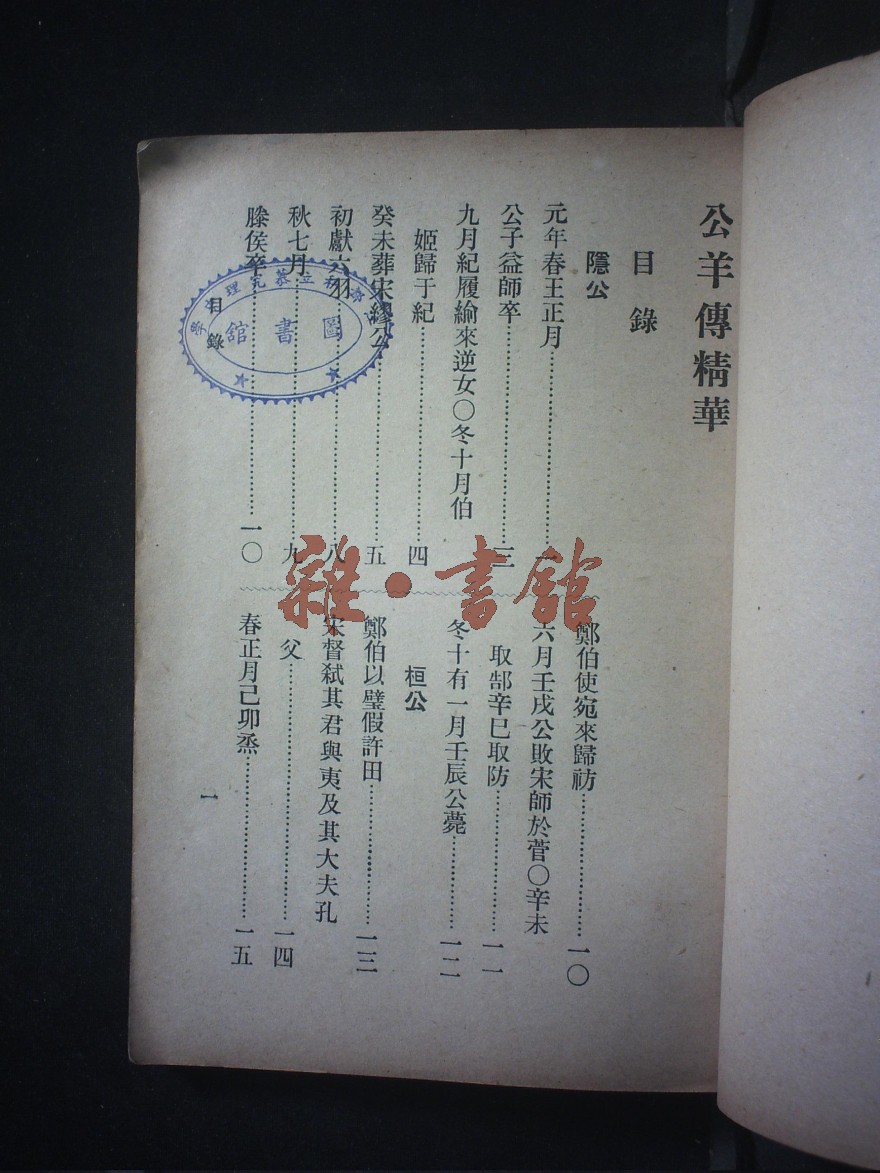 公羊傳精華
目錄
隱公
元年春王正月……一
公子益師卒……三
九月紀履緰來逆女〇冬十月伯
姬歸于紀……四
癸未葬宋繆公……五
初獻六羽……八
秋七月……九
滕侯卒……一〇
鄭伯使宛來歸祊……一〇
六月壬戌公敗宋師於菅〇辛未
取郜辛巳取防……一一
冬十有一月壬辰公薨……一二
桓公
鄭伯以璧假許田……一三
宋督弒其君與夷及其大夫孔
父……一四
春正月己卯烝……一五
目錄
一
圖書館
雜·書館